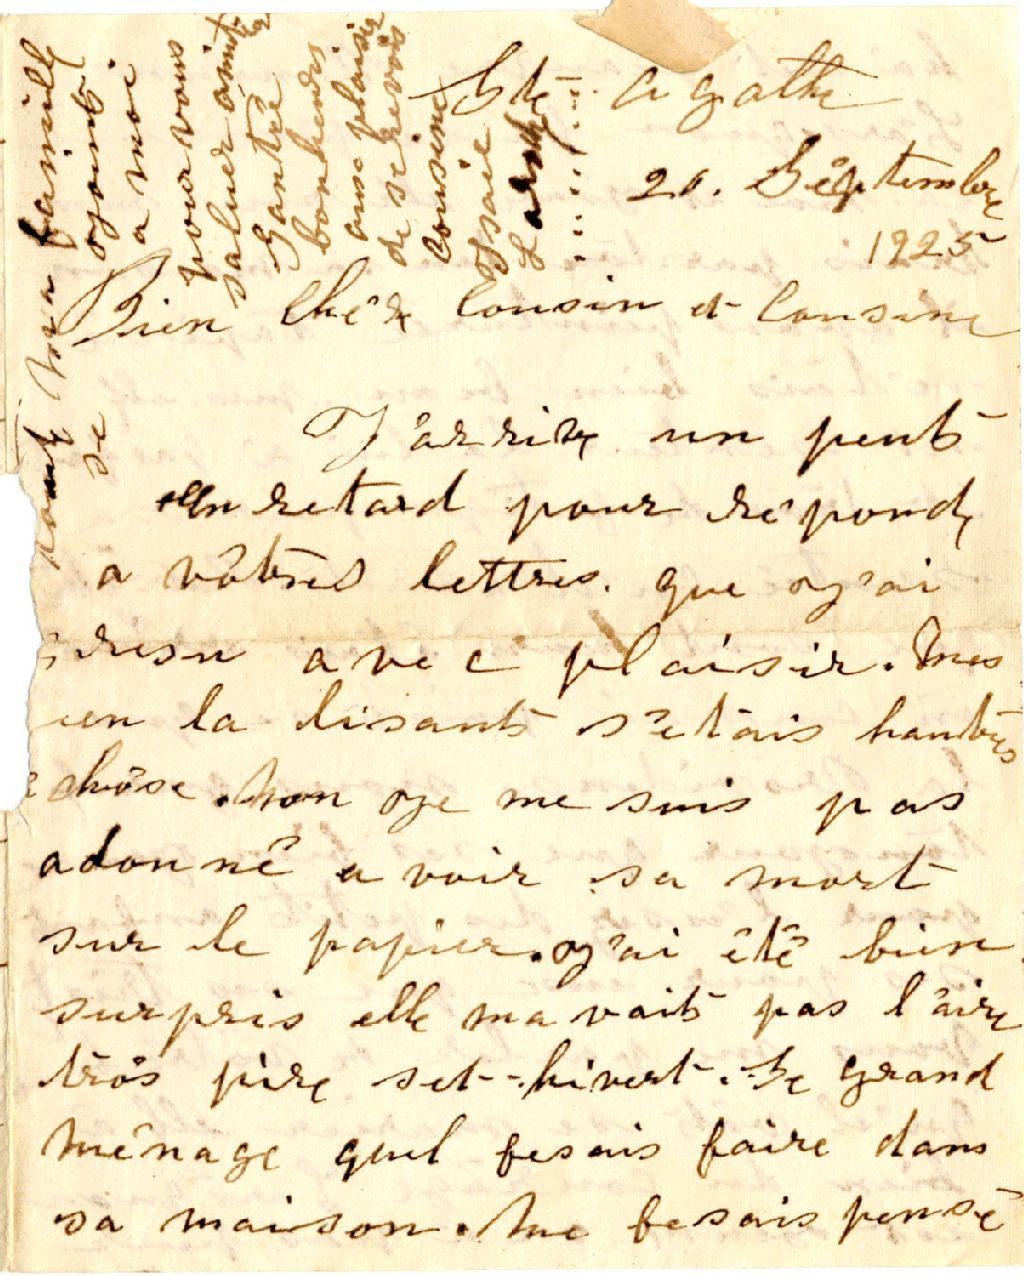 Ste Agathe
20. Septembre
1925
Bien Chère Cousin et Cousine
J'arrive un peut
en retard pour répondre
a vôtres lettres. que j'ai
avec plaisir. Mes
en la lisants s'étais hautres
chôse. Non je me suis pas
adonné a voir sa mort
sur le papier. j'ai été bien
surpris elle mavait pas l'aire
trôs pire set-hivert. Se grand
ménage quel fesais faire dans
sa maison. Me fesais pensé
toute ma famille
se
ojoint
a moi
pour vous
saluer
Santré
bonheurs
avec plaisir
de se revoir
cousine